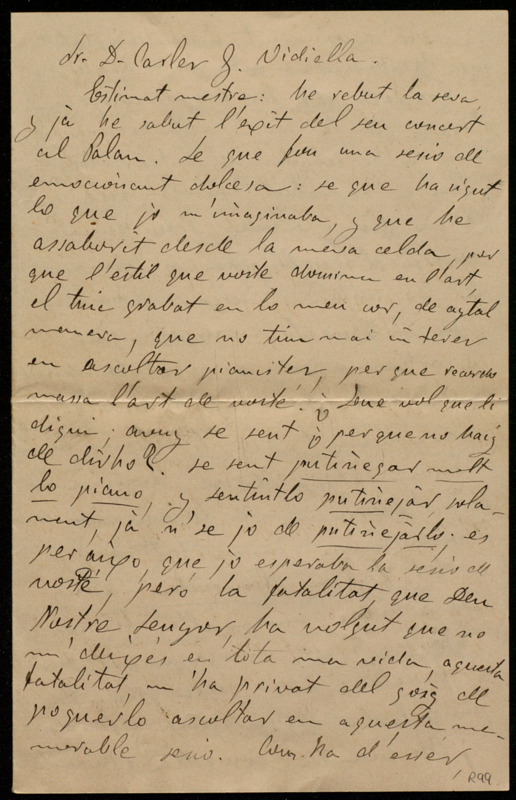 Sr. D. Carles G. Vidiella.
Estimat mestre: he rebut la seva,
y já he sabut l'exit del seu concert
al Palau. Se que fou una sesio de
emocionant dolcesa: se que ha sigut
lo que jo m'imaginaba, y que he
assaborit desde la meva celda, per
que l'estil que vosté domina en l'art,
el tinc grabat en lo meu cor, de aytal
manera, que no tinc mai interes
en ascoltar pianistes, perque recordo
massa l'art de vosté. Que vol que li
digui; avuy se sent y perque no haig
de dirho? se sent putiñejar molt
lo piano, y sentintlo putiñejar sola-
ment, já n'se jo de putiñejarlo; es
per aixo, que jo esperaba la sesio de
vosté, peró la fatalitat que Deu
Nostre Senyor, ha volgut que no
m' deixés en tota ma vida, aquesta
fatalitat, m'ha privat del goig de
poguerlo ascoltar en aquesta me-
morable sesio. Com ha d'esser,
R99